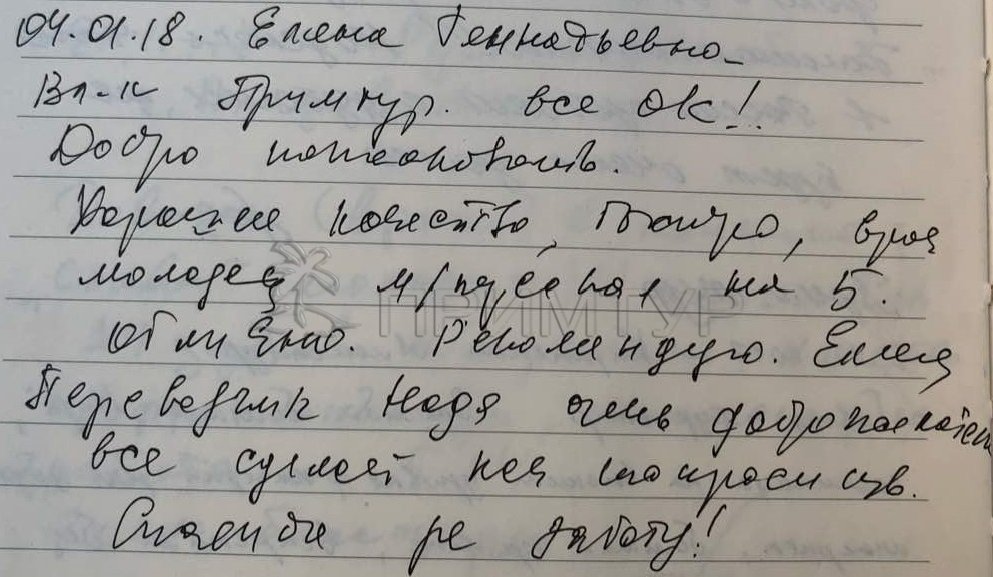 04.01.18. Елена Геннадьевна
Вл-к Примтур. все ОК!
Добро пожаловать.
Хорошее качество, быстро, врач
молодец на 5.
ПРИМТУР
Отлично. Рекомендую. Елена
Переводчик Надя очень доброжелател
все сделает
Спасибо за заботу!